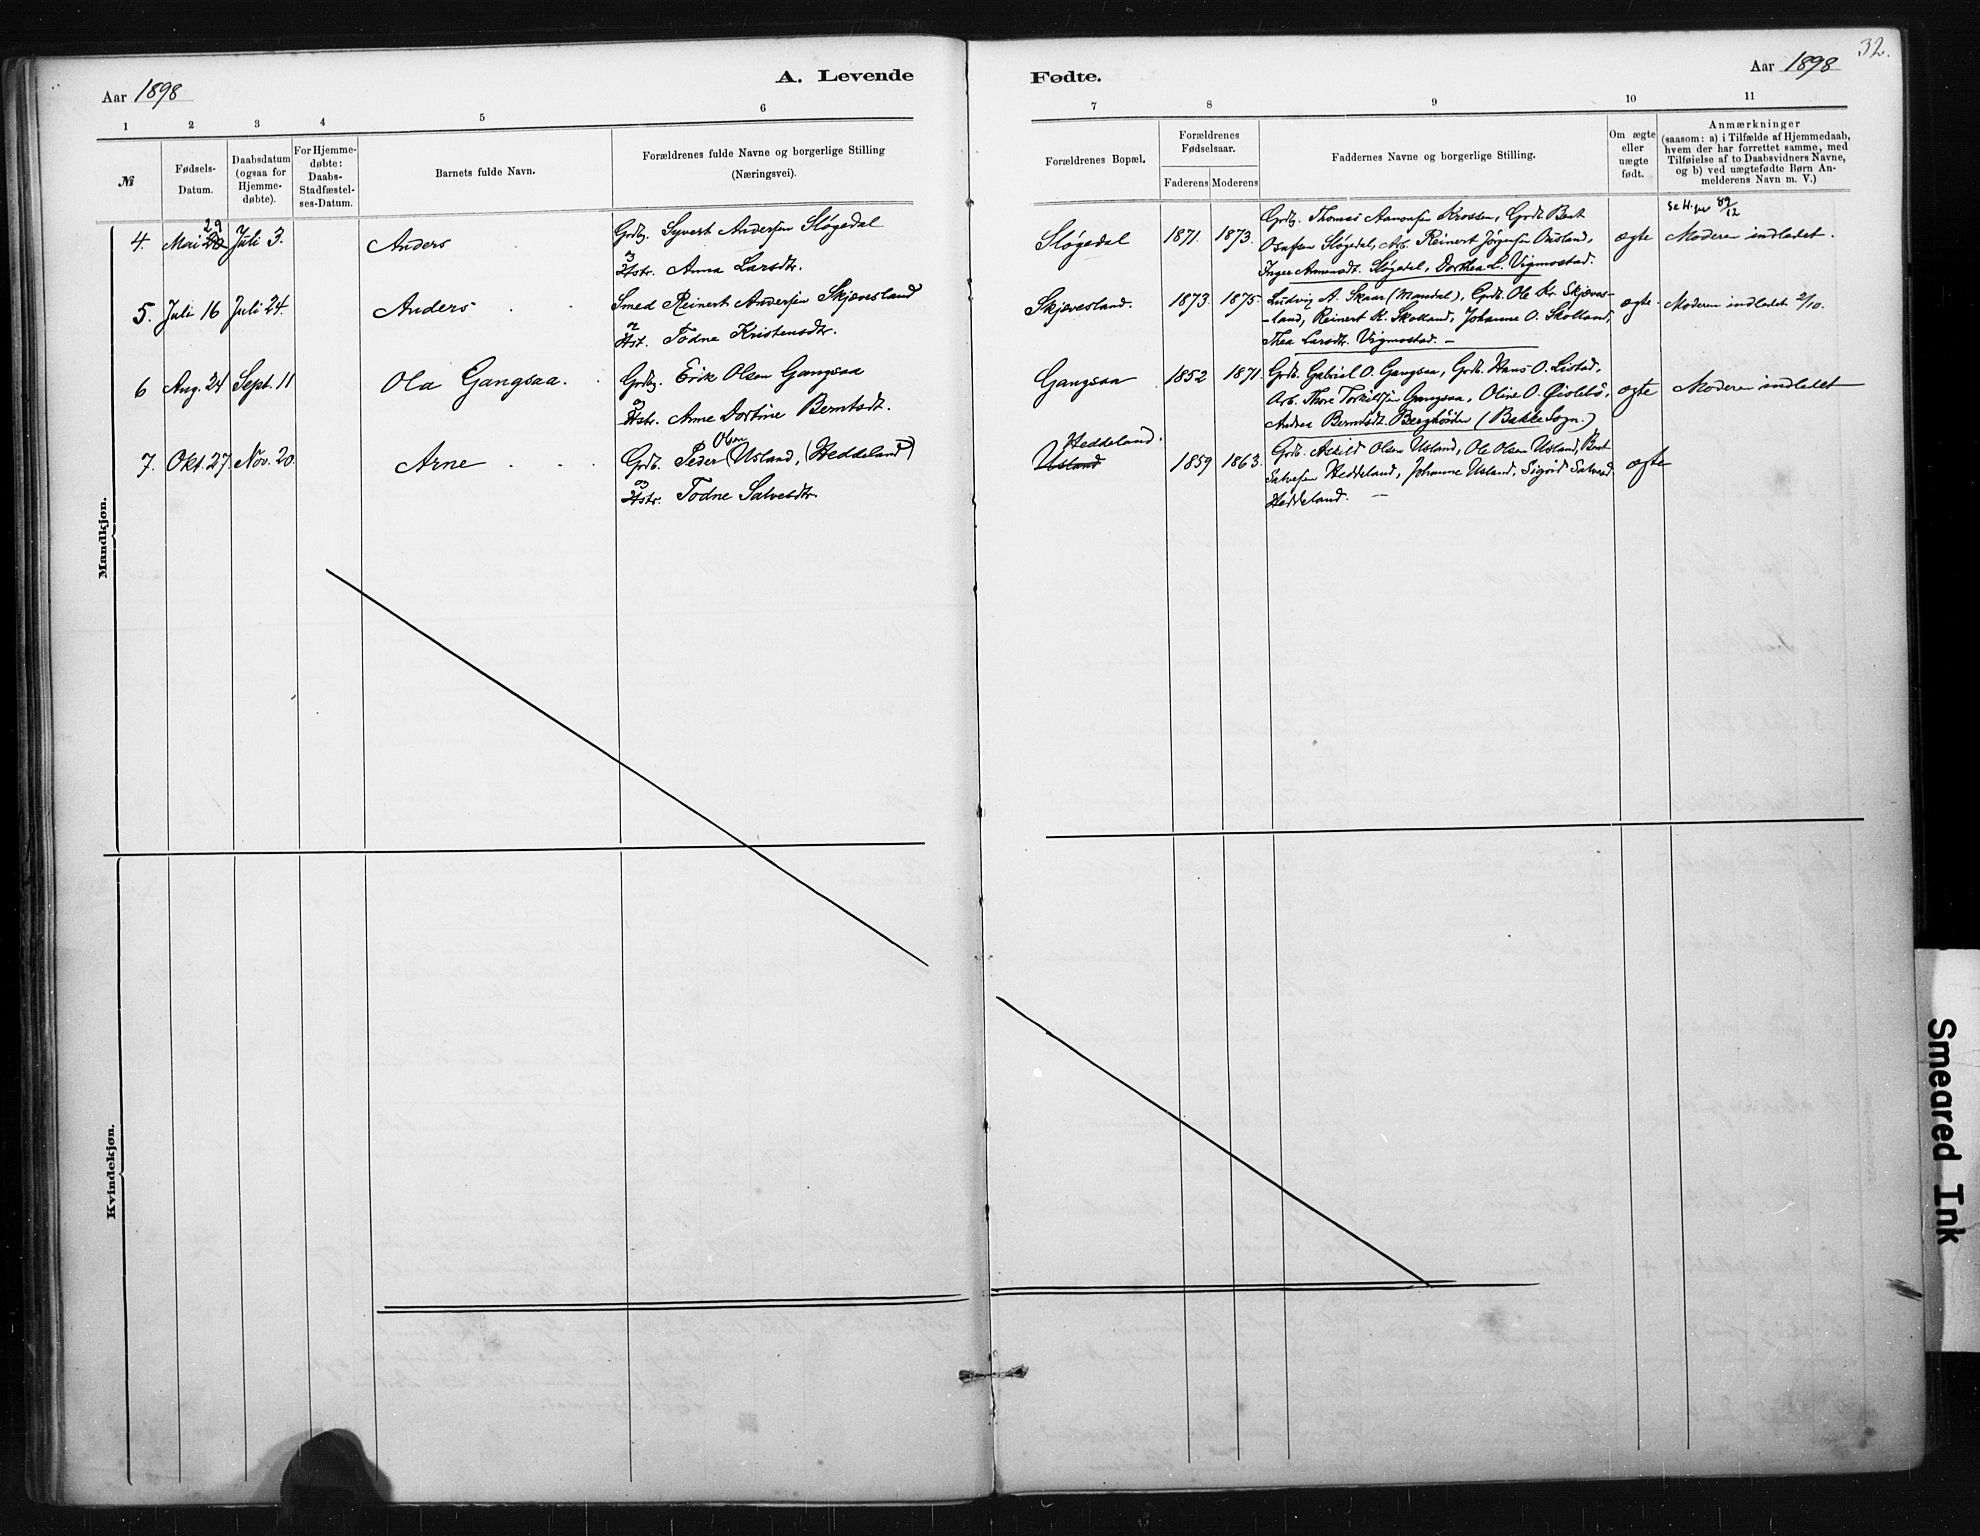 32.
Aar 1898
A. Levende
Fødte.
Aar 1898
1 2 3 4 5 6 7 8 9 10 11
№
Fødsels-
Datum.
Daabsdatum
(ogsaa for
Hjemme-
døbte).
For Hjemme-
døbte:
Daabs-
Stadfæstel-
ses-Datum.
Barnets fulde Navn.
Forældrenes fulde Navne og borgerlige Stilling
(Næringsvei).
Forældrenes Bopæl.
Forældrenes
Fødselsaar.
Faderens Moderens
Faddernes Navne og borgerlige Stilling.
Om ægte
eller
uægte
født.
Anmærkninger
(saasom: a) i Tilfælde af Hjemmedaab,
hvem der har forrettet samme, med
Tilføielse af to Daabsvidners Navne,
og b) ved uægtefødte Børn An-
melderens Navn m. V.)
Mandkjøn.
4 Mai 29 Juli 3. Anders
Grdbg. Syvert Andersen Sløgedal
Hstr. Anna Larsdtr.
Sløgedal 1871. 1873.
Grdbg. Thomas Aanonsen Krossen, Grdb. Bent
Osufsen Sløgedal, Arb. Reinert Jørgensen Ousland,
Inger Aanensdt. Sløgedal, Dorthea L. Vigmostad.
ægte Moderen indledet.
5. Juli 16 Juli 24. Anders
Smed Reinert Andersen Skjævesland
Hst. Todne Kristensdtr.
Skjævesland. 1873. 1875.
Ludvig A. Skaar (Mandal), Grdb. Ole Kr. Skjæves-
-land, Reinert K. Skolland, Johanne O. Skolland,
Thea Larsdtr. Vigmostad. -
ægte. Moderen indledet 2/10.
6 Aug. 24 Sept. 11 Ola Gangsaa.
Grdbg. Erik Olsen Gangsaa
Hstr. Anne Dortine Berntsdt.
Gangsaa 1852 1871.
Grdb. Gabriel O. Gangsaa, Grdb. Hans O. Listad,
Arb. Thore Torkildsen Gangsaa, Oline O. Øislebø,
Andrea Berntsdt. Berghörten (Bakke Sogn.)
ægte Moderen indledet
7. Okt. 27. Nov. 20. Arne
Grdb. Peder Olsen Usland, (Heddeland)
Hstr. Todne Salvesdtr.
Heddeland.
Usland 1859 1863.
Grdb. Askild Olsen Usland, Ole Olsen Usland, Bent
Salvesen Heddeland, Johanne Usland, Sigrid Salvesd.
Heddeland. -
ægte
Kvindekjøn.
Smeared Ink